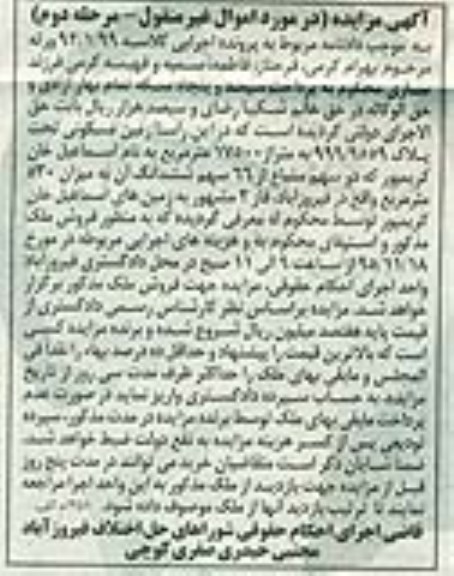 آگهی مزایده (در مورد اموال غیر منقول - مرحله دوم)
به موجب دادنامه مربوط به پرونده اجرایی کلاسه ورثه
مرحوم بهرام کرمی، فرحناز، فاطمه، سمیه و فهیمه کرمی فرزند
محکوم به پرداخت سیصد و پنجاه سکه تمام بهار آزادی و
حق الوکاله در حق خانم رضایی و سیصد هزار ریال بابت حق
الاجرای دولتی گردیده است که در این راستا زمین مسکونی تحت
پلاک به متراژ ۱۷۵۰۰ مترمربع به نام اسماعیل خان
کریمپور که دو سهم مشاع از ۶۶ سهم ششدانگ آن به میزان ۵۳۰
مترمربع واقع در فیروزآباد، فاز ۳ مشهور به زمین های اسماعیل خان
کریمپور توسط محکوم له معرفی گردیده که به منظور فروش ملک
مذکور و استیفای محکوم به و هزینه های اجرایی مربوطه در مورخ
از ساعت ۹ الی ۱۱ صبح در محل دادگستری فیروزآباد
واحد اجرای احکام حقوقی، مزایده جهت فروش ملک مذکور برگزار
خواهد شد. مزایده براساس نظر کارشناس رسمی دادگستری از
قیمت پایه هفتصد میلیون ریال شروع شده و برنده مزایده کسی
است که بالاترین قیمت را پیشنهاد و حداقل ده درصد بهاء را نقدا فی
المجلس و مابقی بهای ملک را حداکثر ظرف مدت سی روز از تاریخ
مزایده، به حساب سپرده دادگستری واریز نماید در صورت عدم
پرداخت مابقی بهای ملک توسط برنده مزایده در مدت مذکور، سپرده
تودیعی پس از کسر هزینه مزایده به نفع دولت ضبط خواهد شد.
ضمنا شایان ذکر است متقاضیان خرید می توانند در مدت پنج روز
قبل از مزایده جهت بازدید از ملک مذکور به این واحد اجرا مراجعه
نمایند تا ترتیب بازدید آنها از ملک موصوف داده شود.
قاضی اجرای احکام حقوقی شوراهای حل اختلاف فیروزآباد
مجتبی حیدری صفری کوچی